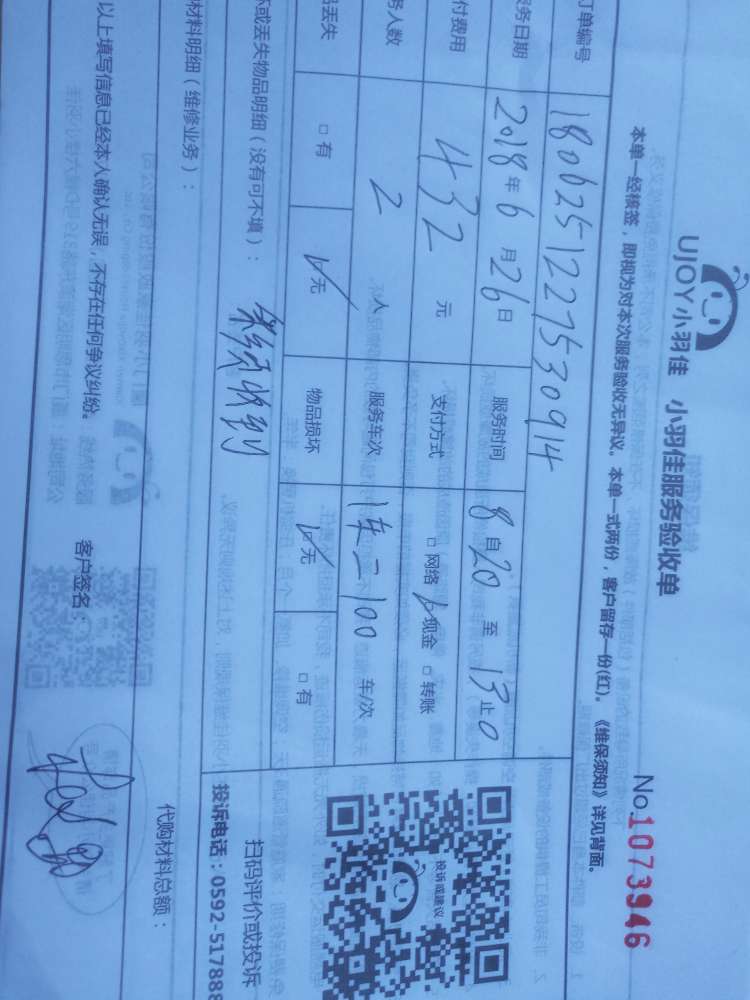 UJOY小羽佳 小羽佳服务验收单
No.1073946
本单一经核签，即视为对本次服务验收无异议。本单一式两份，客户留存一份(红)。《维保须知》详见背面。
订单编号 1806251227530914
服务日期 2018年6月26日 服务时间 8自20至13止0
付费用 432元 支付方式 □网络 ☑现金 □转账
务人数 2人 服务车次 车/次
品丢失 □有 ☑无 物品损坏 ☑无 □有
坏或丢失物品明细（没有可不填）：
收到
材料明细（维修业务）：
代购材料总额：
投诉或建议
扫码评价或投诉
投诉电话：0592-517888
以上填写信息已经本人确认无误，不存在任何争议纠纷。 客户签名：